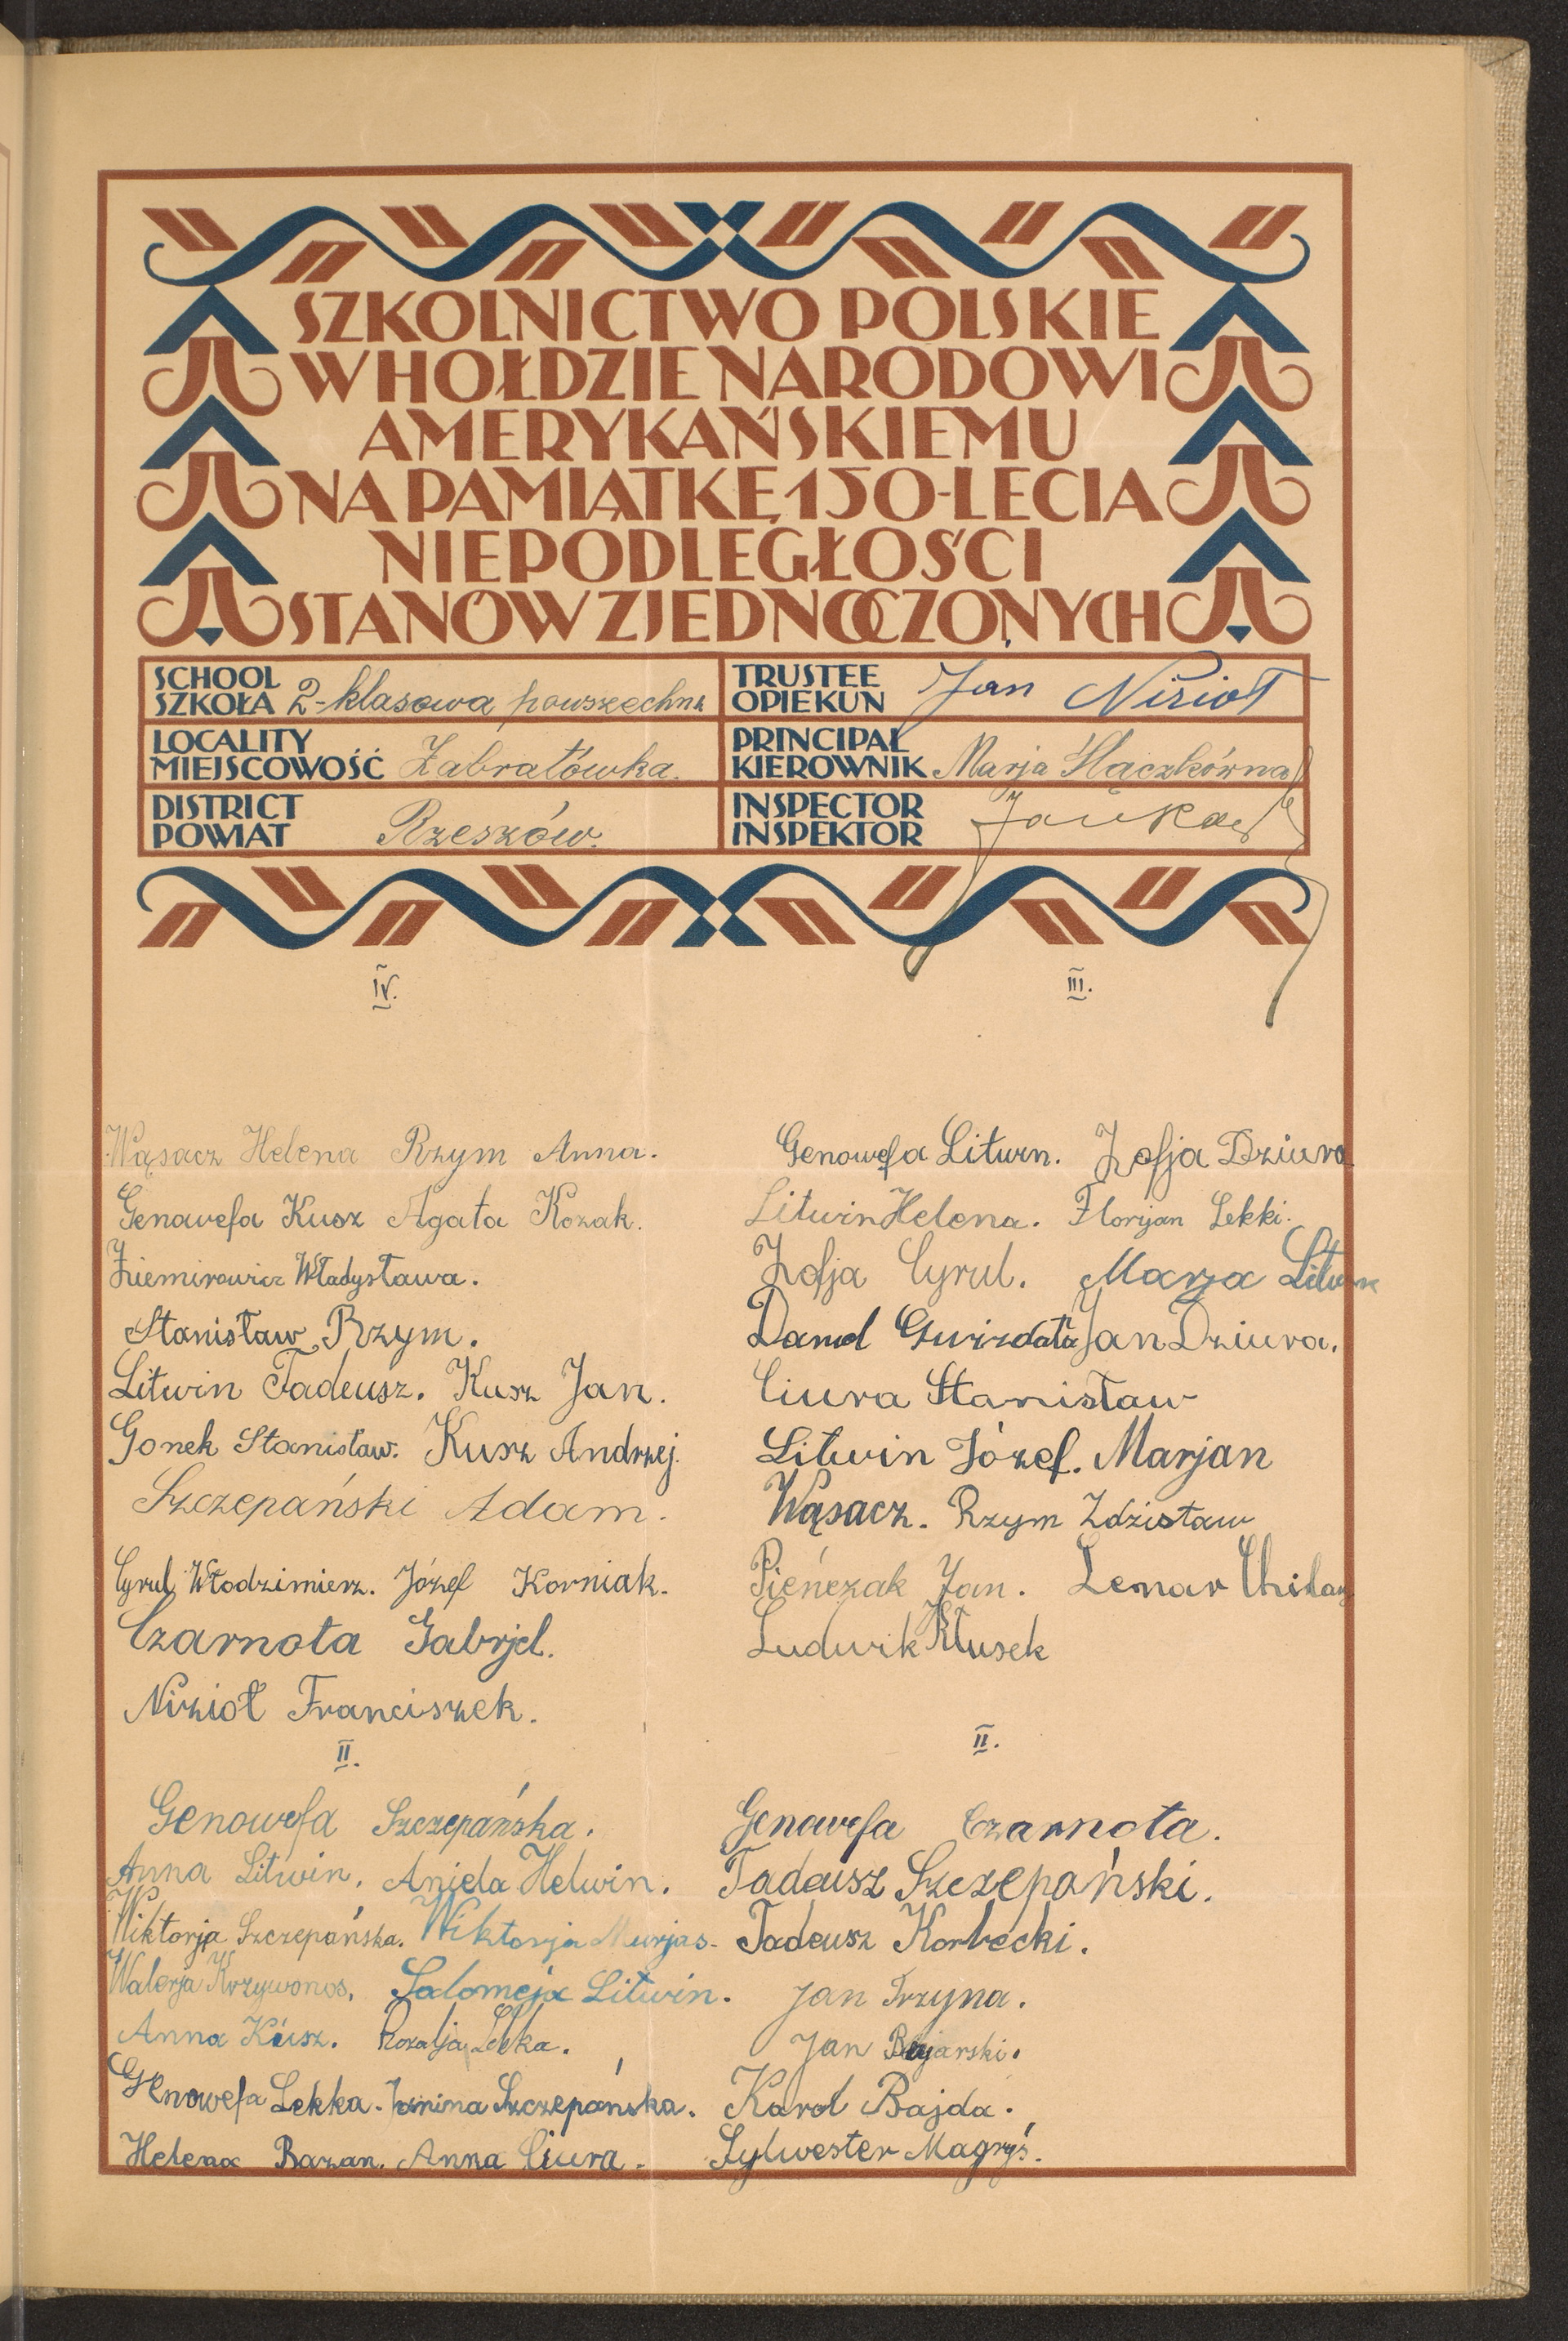 SZKOLNICTWO POLSKIE
W HOŁDZIE NARODOWI
AMERYKAŃSKIEMU
NA PAMIĄTKĘ 150-LECIA
NIEPODLEGŁOŚCI
STANÓW ZJEDNOCZONYCH
SCHOOL
SZKOŁA 2-klasowa powszechna
TRUSTEE
OPIEKUN Jan Nizioł
LOCALITY
MIEJSCOWOŚĆ Zabratówka.
PRINCIPAL
KIEROWNIK Marja Hączkówna
DISTRICT
POWIAT Rzeszów.
INSPECTOR
INSPEKTOR
IV.
Wąsacz Helena Rzym Anna.
Genowefa Kusz Agata Kozak.
Ziemirowicz Władysława.
Stanisław Rzym.
Litwin Tadeusz. Kusz Jan.
Gonek Stanisław. Kusz Andrzej.
Szczepański Adam.
Cyrul Włodzimierz. Józef Korniak.
Czarnota Gabrjel.
Nizioł Franciszek.
III.
Genowefa Litwin. Zofja Dziura
Litwin Helena. Florjan Lekki.
Zofja Cyrul. Marja Litwin
Gwizdała Jan Dziura.
Ciura Stanisław
Litwin Józef. Marjan
Wąsacz. Rzym Zdzisław
Pieńczak Jan. Lenar
Ludwik Kłusek
II.
Genowefa Szczepańska.
Anna Litwin. Aniela Helwin.
Wiktorja Szczepańska. Wiktorja Murjas.
Walerja Krzywonos. Salomeja Litwin.
Anna Kusz. Rozalja Lekka.
Genowefa Lekka. Janina Szczepańska.
Helena Bazan. Anna Ciura.
II.
Genowefa Czarnota.
Tadeusz Szczepański.
Tadeusz Korbecki.
Jan Trzyna.
Jan Bajarski.
Karol Bajda.
Sylwester Magryś.